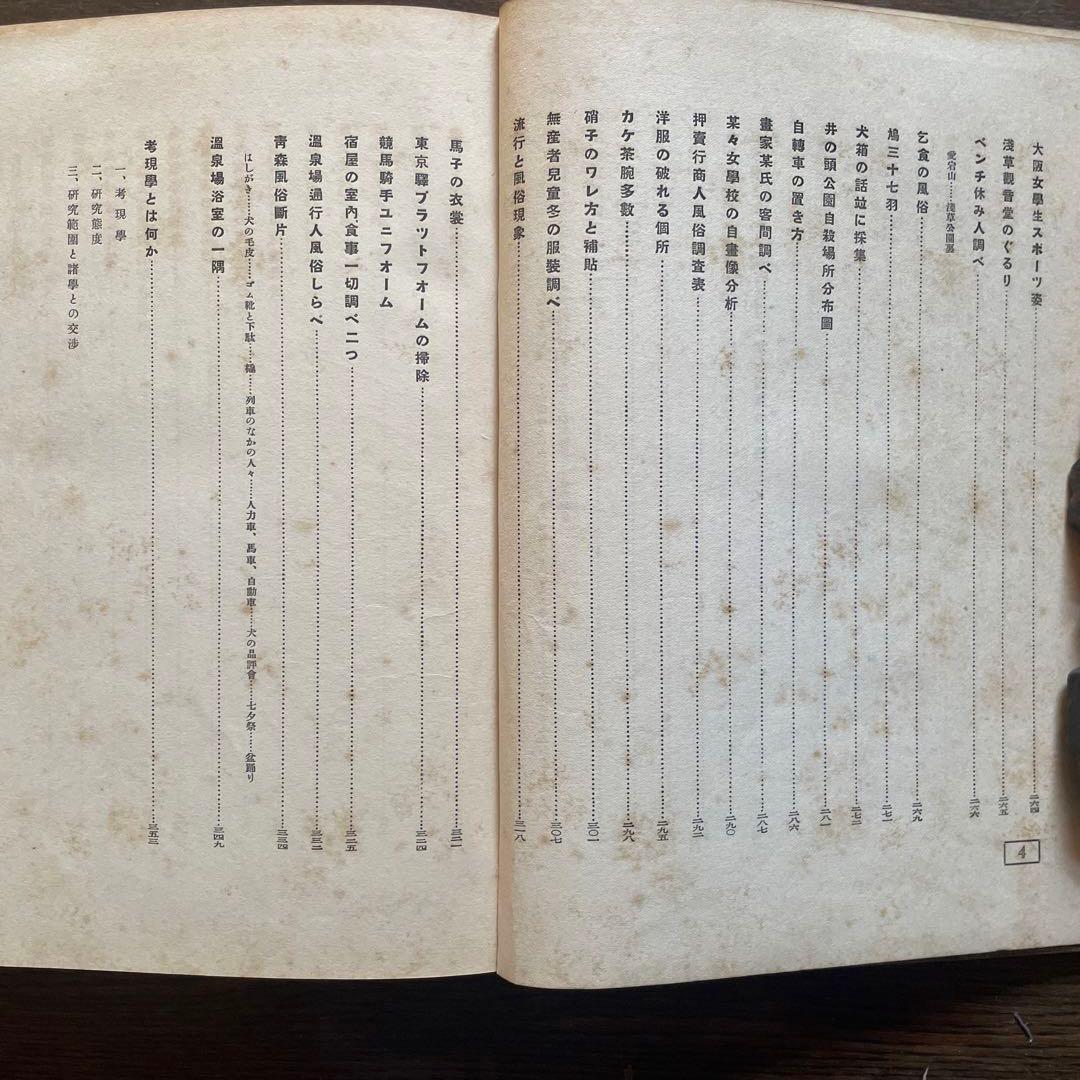 大阪女學生スポーツ姿……二六四
淺草觀音堂のぐるり……二六五
ベンチ休み人調べ……二六六
愛宕山……淺草公園裏
乞食の風俗……二六九
鳩三十七羽……二七一
犬箱の話竝に採集……二七二
井の頭公園自殺場所分布圖……二八一
自轉車の置き方……二八六
畫家某氏の客間調べ……二八七
某々女學校の自畫像分析……二九〇
押賣行商人風俗調査表……二九二
洋服の破れる個所……二九五
カケ茶腕多數……二九八
硝子のワレ方と補貼……三〇一
無産者兒童冬の服裝調べ……三〇七
流行と風俗現象……三一八
4
馬子の衣裳……三二一
東京驛プラットフォームの掃除……三二四
競馬騎手ユニフオーム
宿屋の室內、食事一切調べ二つ……三二五
溫泉場通行人風俗しらべ……三三二
靑森風俗斷片……三三四
はしがき……犬の毛皮……ゴム靴と下駄……橇……列車のなかの人々……人力車、馬車、自動車……犬の品評會……七夕祭……盆踊り
溫泉場浴室の一隅……三四九
考現學とは何か……三五三
一、考現學
二、研究態度
三、研究範圍と諸學との交渉